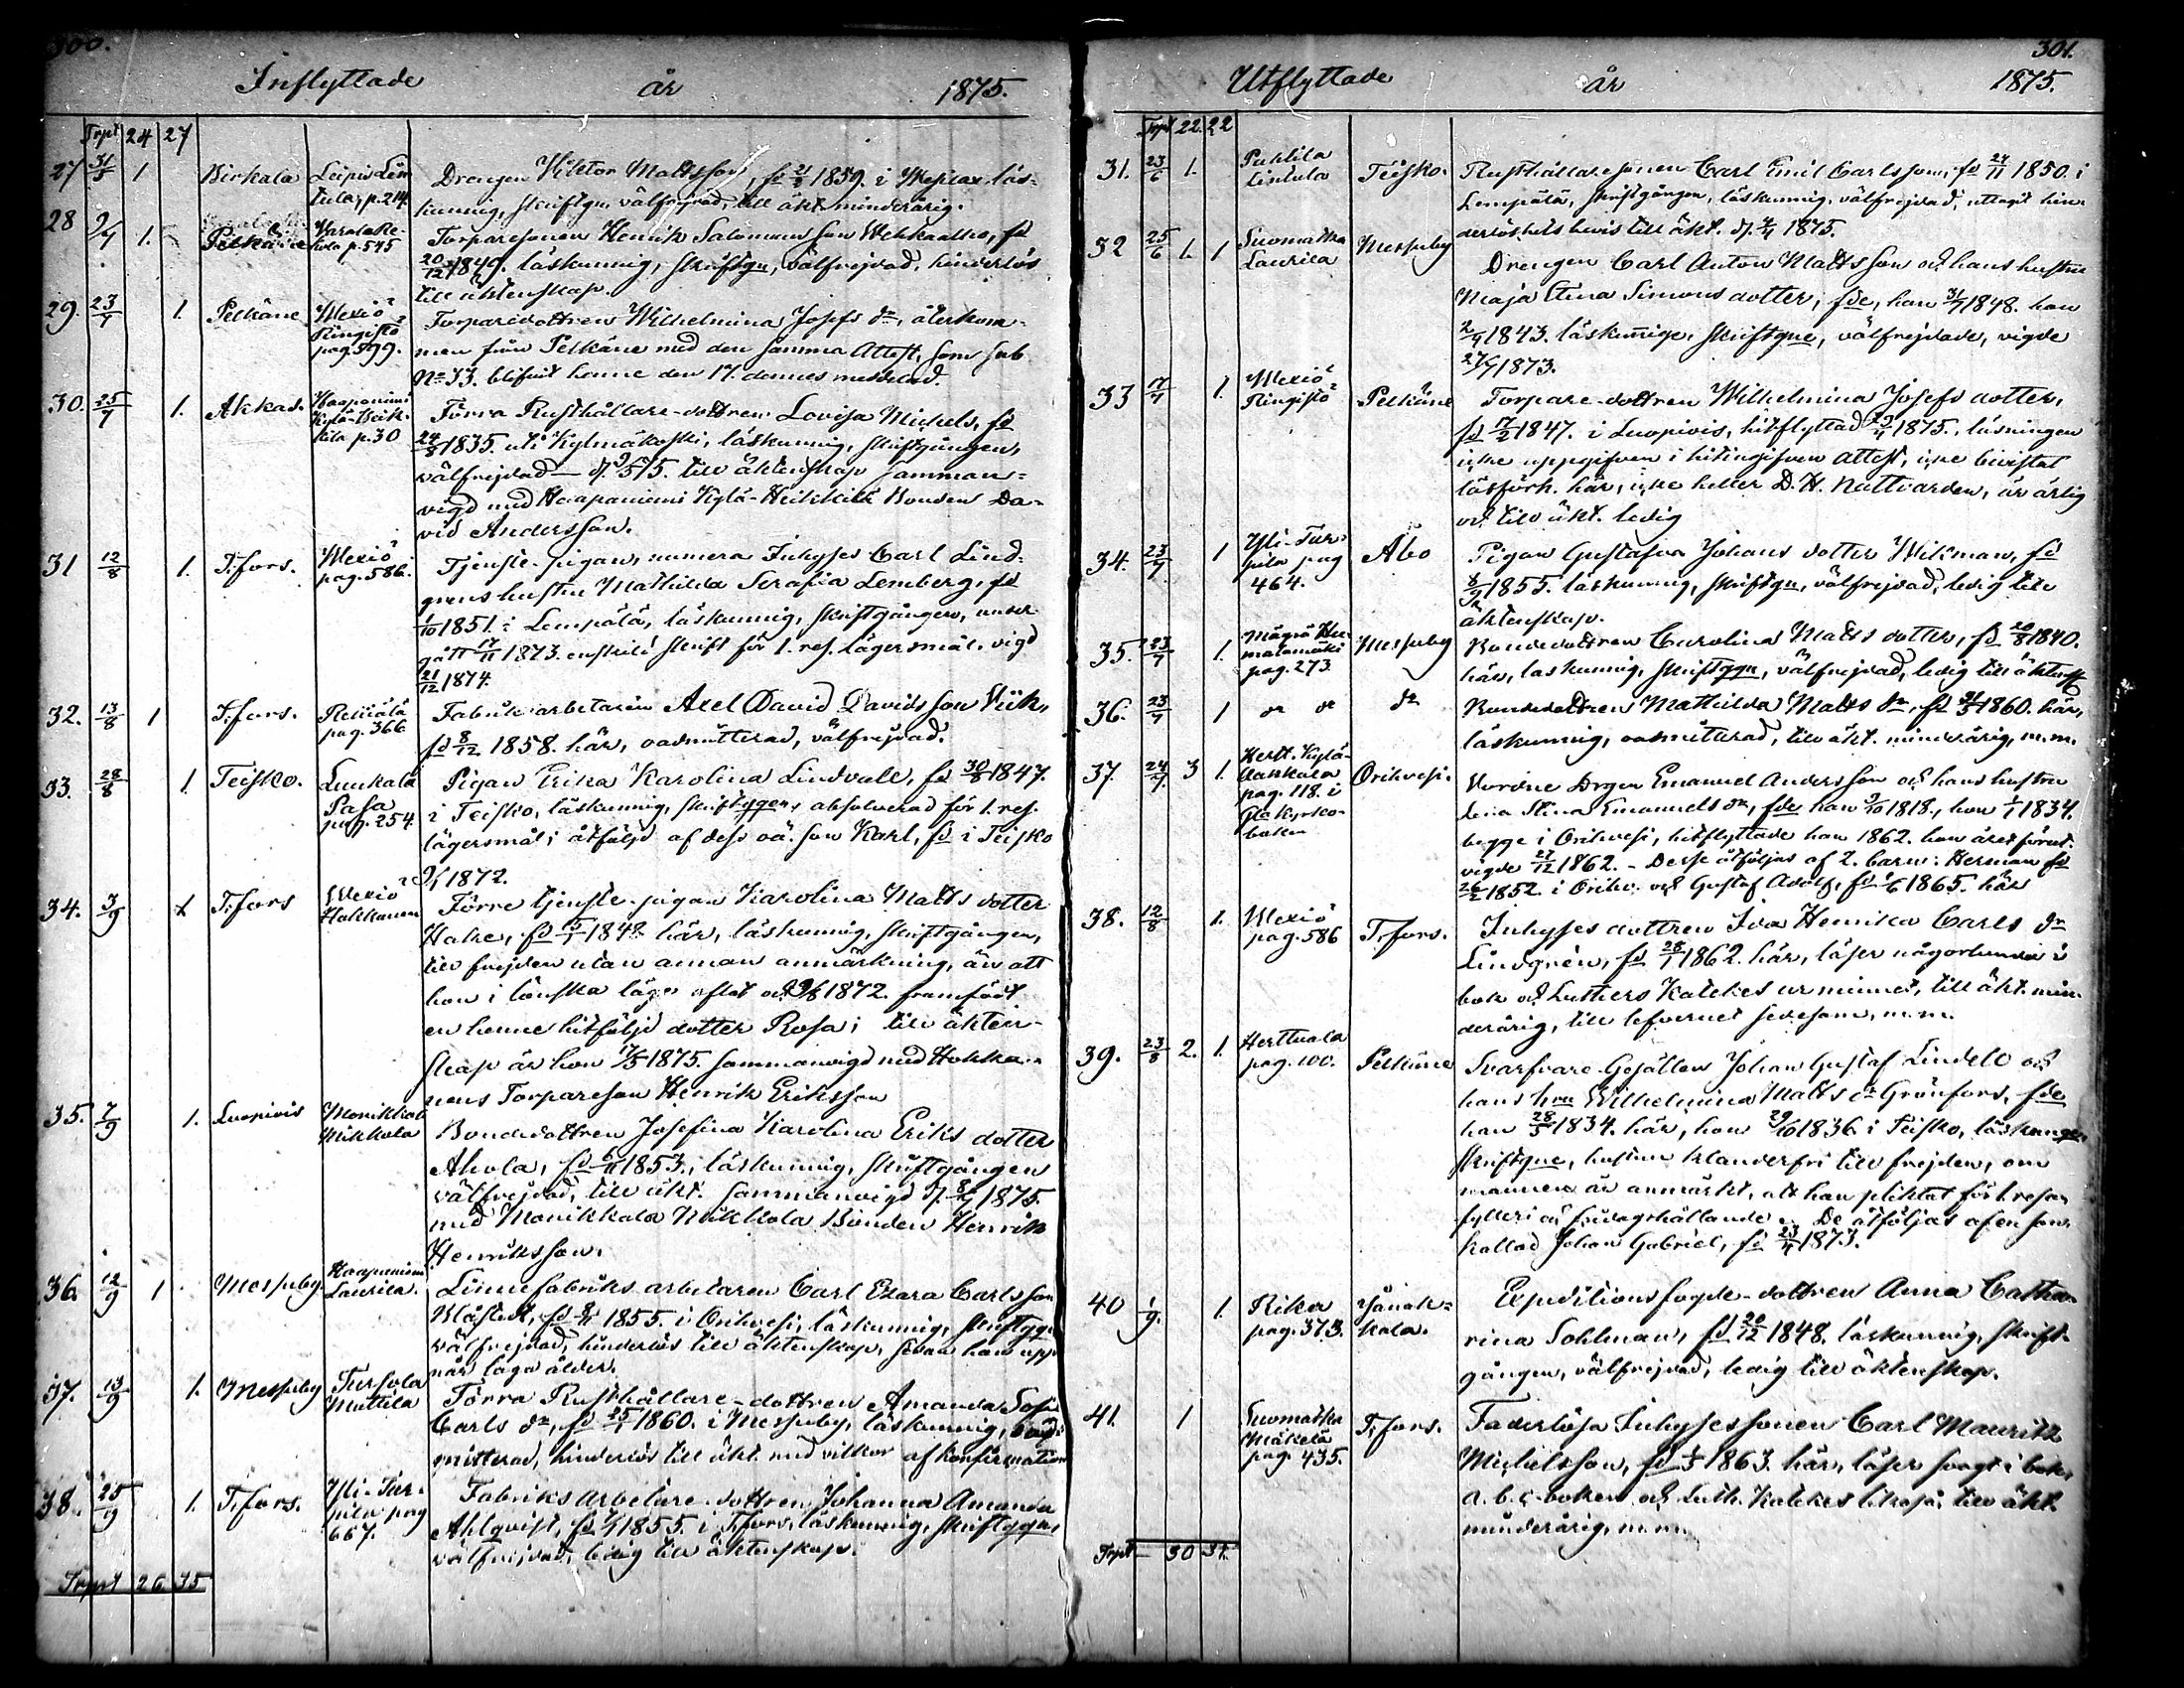 300.
Inflyttade år 1875.
Trpt 24 27
27 31/5 1 Birkala Leipis Lin
tula, p. 214. Drengen Viktor Mattsson, fd 21/2 1859. i Messlax läs-
kunnig, skriftgn, välfrejdad, till äkt. minderårig.
28 2/7 1. Pelkäne Torparesonen Henrik Salomonsson Wehkaalho, fd
p. 545 20/12 1849. läskunnig, skriftgn, välfrejdad, hinderlös
till äktenskap.
29. 23/7 1. Pelkäne Mexiö
Ringistö
pag. 599. Torparedottren Wilhelmina Josefs dr, återkom-
men från Pelkäne med den samma Attest, som sub
No 33. blifvit henne den 17. dennes meddelad.
30. 25/7 1. Akkas. Haapaniemi
Kylä-Heik-
kilä p. 30 Förra Rusthållare-dottren Lovisa Michels, fd
24/8 1835. uti Kylmäkoski, läskunnig, skriftgången,
välfrejdad – d. 9/5 75. till äktenskap samman-
vigd med Haapaniemi Kylä-Heikkilä Bonden Da-
vid Andersson.
31 12/8 1. T:fors. Mexiö
pag. 586. Tjenste-pigan, numera Inhyses Carl Lind-
grens hustru Mathilda Serafia Lemberg, fd
1/10 1851. i Lempälä, läskunnig, skriftgången, under-
gått 17/11 1873. enskild skrift för 1. res. lägersmål, vigd
21/12 1874.
32. 13/8 1 T:fors. Rekiälä
pag. 366 Fabriks arbetaren Axel David Davidsson Vik,
fd 8/12 1858. här, oadmitterad, välfrejdad.
33. 28/8 1. Teisko. Luukala
Pasa
pag. 254. Pigan Erika Karolina Lindvall, fd 30/8 1847.
i Teisko, läskunnig, skriftggen, absolverad för 1. res.
lägersmål; åtföljd af dess oä. son Karl, fd i Teisko
1872.
34. 3/9 1 T:fors Mexiö
Hakkanen Förre tjenste-pigan Karolina Matts dotter
Hake, fd 1848 här, läskunnig, skriftgången,
till frejden utan annan anmärkning, än att
hon i lönska läge aflat och 1872. framfödt
en henne hitföljd dotter Rosa; till äkten-
skap är hon 17/5 1875. sammanvigd med Hakka-
nens Torpareson Henrik Eriksson
35. 7/9 1. Luopiois Monikkala
Mikkola Bondedottren Josefina Karolina Eriks dotter
Ahola, fd 6/11 1853., läskunnig, skriftgången
välfrejdad, till äkt. sammanvigd d. 8/7 1875.
med Monikkala Mikkola Bonden Henrik
Henriksson.
36. 12/9 1 Messuby Haapaniemi
Laurila. Linnefabriks arbetaren Carl Ezara Carlsson
fd 1855. i Orihvesi, läskunnig, skriftgg.
välfrejdad, hinderlös till äktenskap, sedan han upp-
når laga ålder.
37. 13/9 1. Messuby Tursola
Muttila Förra Rusthållare-dottren Amanda Sofi
Carls dr, fd 25/1 1860. i Messuby, läskunnig, oad-
mitterad, hinderlös till äkt. med vilkor af konfirmation
38. 25/9 1. T:fors. Yli-Tur-
pila pag
667. Fabriks arbetare-dottren Johanna Amanda
Ahlqvist, fd 1855. i T:fors, läskunnig, skriftggn,
välfrejdad, ledig till äktenskap.
Trpt 26 35
301.
Utflyttade år 1875.
Trpt 22. 22
31. 23/6 1. Puhtila
Lintula Teisko. Rusthållaresonen Carl Emil Carlsson, fd 24/11 1850. i
Lempälä, skriftgången, läskunnig, välfrejdad, uttagit hin-
derlöshets bevis till äkt. d. 4/7 1875.
32 25/6 1. 1 Suomatka
Laurila Messuby Drengen Carl Anton Mattsson och hans hustru
Maja Stina Simons dotter, fde, han 31/7 1848. hon
2/4 1843. läskunnige, skriftgne, välfrejdade, vigde
27/7 1873.
33 17/7 1. Mexiö
Ringistö Pelkäne Torpare-dottren Wilhelmina Josefs dotter,
fd 17/2 1847. i Luopiois, hitflyttad 1875., läsningen
icke uppgifven i hitingifven attest, icke bevistat
läsförh. här, icke heller D. H. Nattvarden, är ärlig
och till äkt. ledig
34. 23/7 1 Yli-Tur-
pila pag
464. Åbo Pigan Gustafva Johans dotter Wikman, fd
6/9 1855. läskunnig, skriftgn, välfrejdad, ledig till
äktenskap.
35. 23/7 1. Mägrä Hu-
malamäki
pag. 273 Messuby Bondedottren Carolina Matts dotter, fd 20/8 1840.
här, läskunnig, skriftggn, välfrejdad, ledig till äktensk.
36. 23/7 1 dr dr dr Bondedottren Mathilda Matts dr, fd 1860. här,
läskunnig, oadmitterad, till äkt. minderårig, m.m.
37. 24/7. 3 1. Hertt. Kylä-
pag. 118. i
Gla kyrko-
boken Orihvesi. Vordne Drgen Emanuel Andersson och hans hustru
Lena Stina Emanuels dr, fde han 9/10 1818., hon 1/1 1834.
begge i Orihvesi, hitflyttade han 1862. hon året förut.
vigde 27/12 1862. – Desse åtföljas af 2. barn: Herman fd
1852. i Orihv. och Gustaf Adolf, fd 1865. här
38. 12/8 1. Mexiö
pag. 586 T:fors. Inhyses dottren Ida Henrika Carls dr
Lindgrén, fd 25/1 1862. här, läser någorlunda i
bok och Luthers Katekes ur minnet, till äkt. min-
derårig, till lefvernet sedesam, m.m.
39. 23/8 2. 1. Herttuala
pag. 100. Pelkäne Svarfvare-Gesällen Johan Gustaf Lindell och
hans hru Wilhelmina Matts dr Grönfors, fde
han 28/5 1834. här, hon 29/10 1836. i Teisko, läskunge
skriftgne, hustrun klanderfri till frejden, om
mannen är anmärkt, att han pliktat för 1. resan
fylleri och De åtföljas af en son
kallad Johan Gabriel, fd 23/4 1873.
40 1/9. 1. Rika
pag. 373. Janak-
kala. Expeditions fogde-dottren Anna Catha-
rina Sohlman, fd 20/12 1848. läskunnig, skrift-
gången, välfrejdad, ledig till äktenskap.
41. 1 Suomatka
Mäkelä
pag. 435. T:fors. Faderlösa Inhysessonen Carl Mauritz
Michelsson, fd 1863. här, läser svagt i bok,
a.b.c-boken och Luth. Katekes likaså, till äkt.
minderårig, m.m.
Trpt – 30 31.